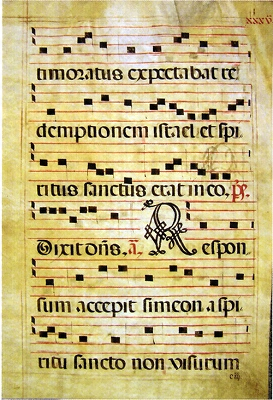 xxxv
timoratus expectabat re
demptionem israel et spi
ritus sanctus erat in eo. ps.
Dixit dns. a. Respon
sum accepit simeon a spi
ritu sancto non visurum